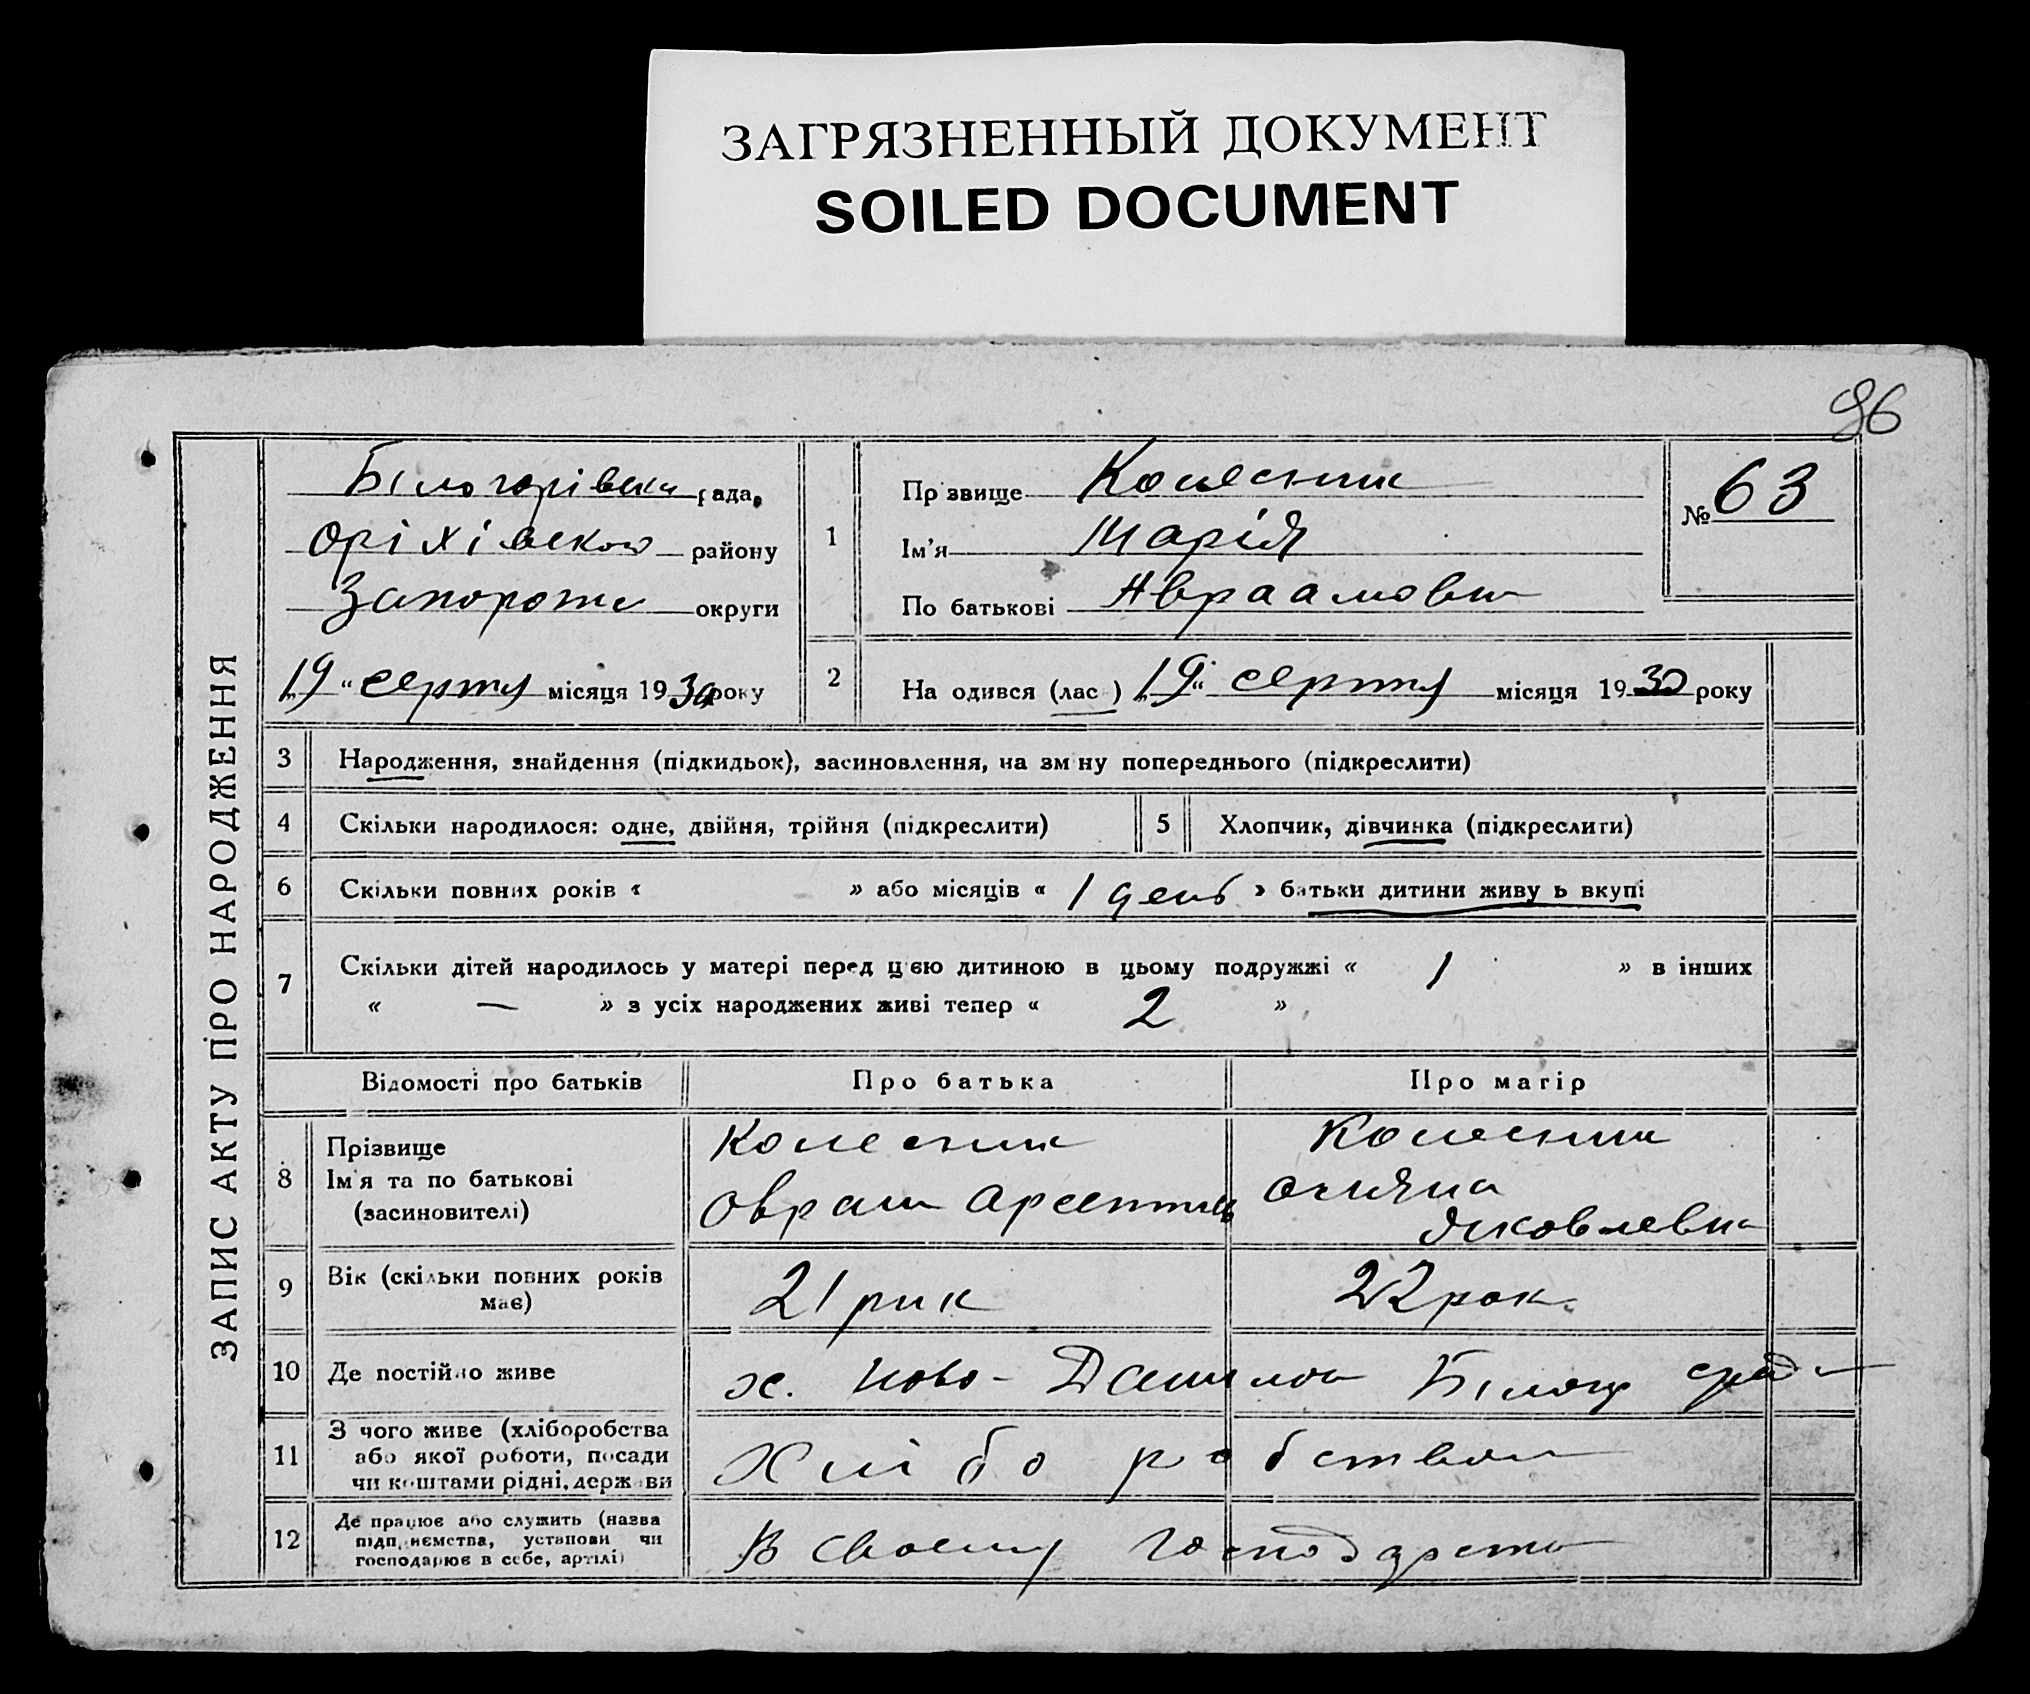 ЗАГРЯЗНЕННЫЙ ДОКУМЕНТ
SOILED DOCUMENT
96
ЗАПИС АКТУ ПРО НАРОДЖЕННЯ
Білогорівська рада,
Оріхівською району
Запорожж округи
„19“ серпня місяця 1930 року
1
Прізвище Колесник
Ім'я Марія
По батькові Авраамовна
№ 63
2
На одився (лас ) „19“ серпня місяця 1930 року
3 Народження, знайдення (підкидьок), засиновлення, на зм ну попереднього (підкреслити)
4 Скільки народилося: одне, двійня, трійня (підкреслити)
5 Хлопчик, дівчинка (підкреслити)
6 Скільки повних років « » або місяців « 1 день » батьки дитини живу ь вкупі
7 Скільки дітей народилось у матері перед цією дитиною в цьому подружжі « 1 » в інших
« — » з усіх народжених живі тепер « 2 »
Відомості про батьків Про батька Про матір
8 Прізвище
Ім'я та по батькові
(засиновителі)
Колесник
Оврам
Колесник
Яковлевна
9 Вік (скільки повних років
має)
21 рик
22 рок.
10 Де постійно живе
х. Ново-
11 З чого живе (хліборобства
або якої роботи, посади
чи коштами рідні, держави
Хліборобством
12 Де працює або служить (назва
підприємства, установи чи
господарює в себе, артілі)
В своему господарстві